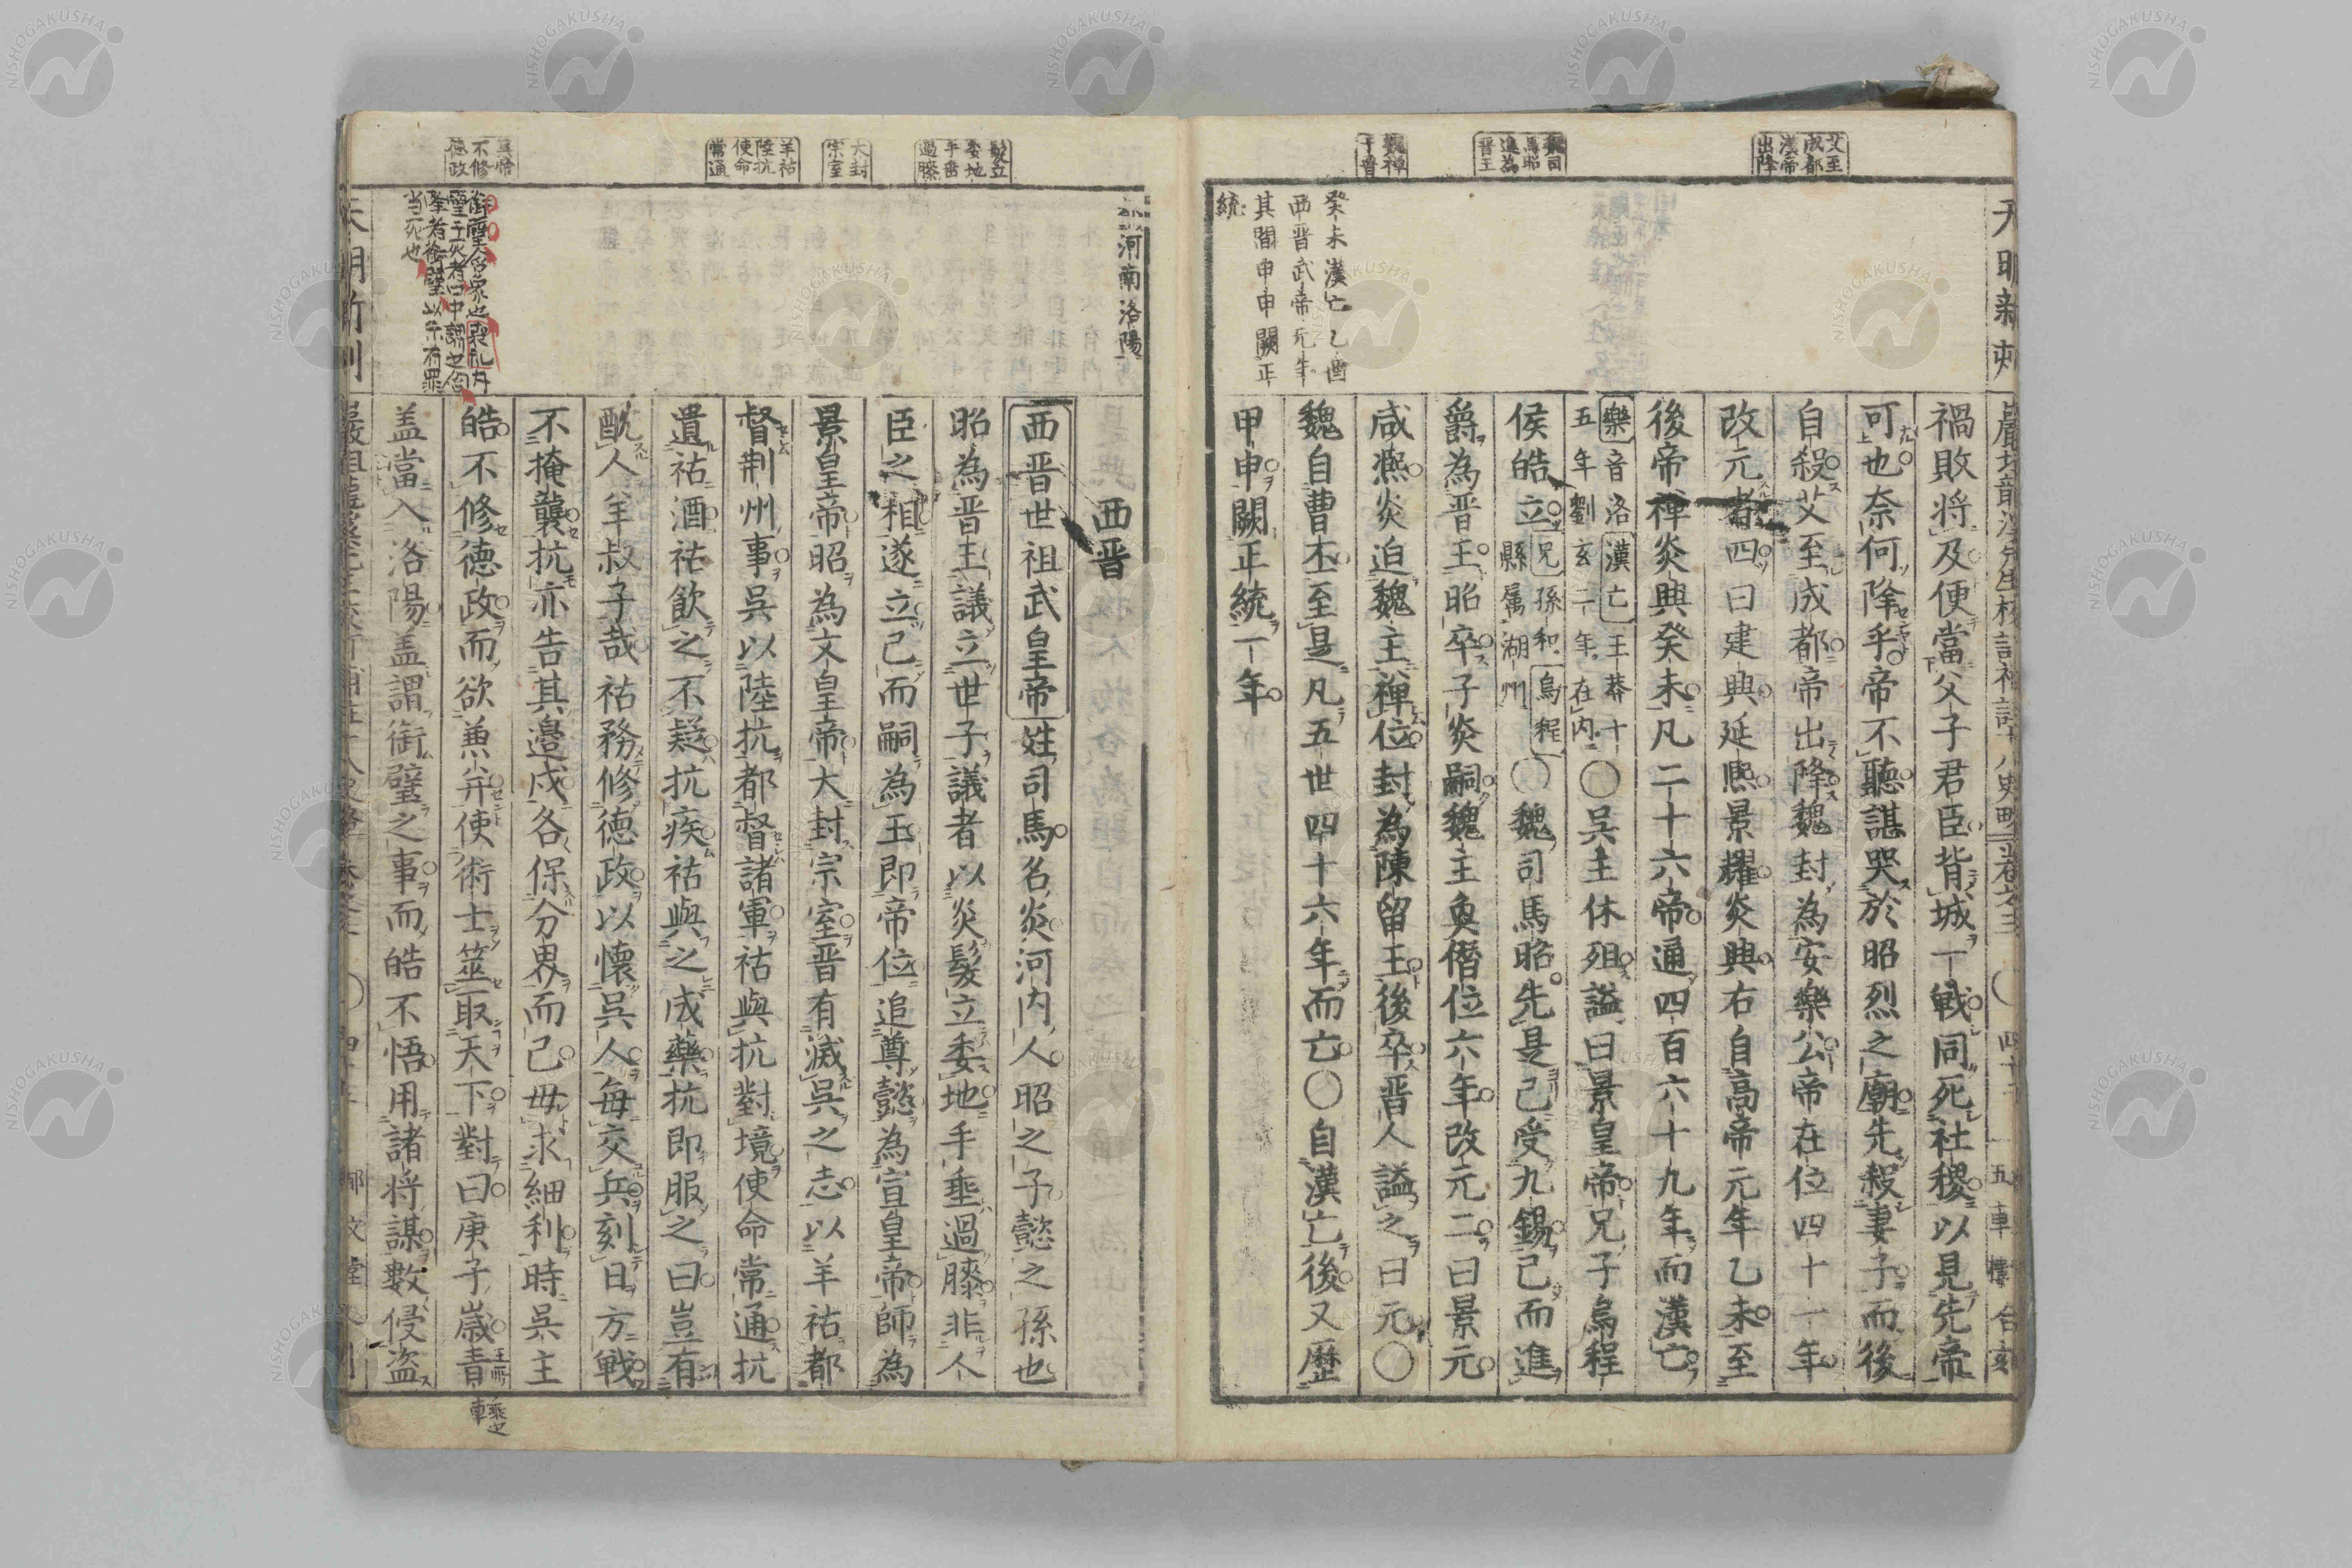 艾至
成都
漢帝
出降
魏司
馬昭
進為
晋王
魏禅
于晋
癸未漢亡乙酉
西晋武帝元年
其間甲申闕正
統
天明新刻
禍敗将及便當父子君臣背城一戦同死社稷以見先帝
可也奈何降乎帝不聽諶哭於昭烈之廟先殺妻子而後
自殺艾至成都帝出降魏封為安樂公帝在位四十一年
改元者四曰建興延熙景耀炎興右自高帝元年乙未至
後帝禅炎興癸未凡二十六帝通四百六十九年而漢亡
樂音洛漢亡王莽十
五年劉玄二年在内〇呉主休殂謚曰景皇帝兄子烏程
侯皓立兄孫和烏程
縣属湖州〇魏司馬昭先是已受九錫已而進
爵為晋王昭卒子炎嗣魏主奐僭位六年改元二曰景元
咸熙炎迫魏主禅位封為陳留王後卒晋人謚之曰元〇
魏自曹丕至是凡五世四十六年而亡〇自漢亡後又歴
甲申闕正統一年
髮立
委地
手垂
過膝
大封
宗室
羊祜
陸抗
使命
常通
呉帝
不修
徳政
河南洛陽
西晋
西晋世祖武皇帝姓司馬名炎河内人昭之子懿之孫也
昭為晋王議立世子議者以炎髮立委地手垂過膝非人
臣之相遂立已而嗣為王即帝位追尊懿為宣皇帝師為
景皇帝昭為文皇帝大封宗室晋有滅呉之志以羊祜都
督荆州事呉以陸抗都督諸軍祜與抗對境使命常通抗
遺祜酒祜飲之不疑抗疾祜與之成藥抗即服之曰豈有
酖人羊叔子哉祜務修徳政以懐呉人毎交兵刻日方戦
不掩襲抗亦告其邉戍各保分界而已毋求細利時呉主
皓不修徳政而欲兼并使術士筮取天下對曰庚子歳青
盖當入洛陽盖謂銜璧之事而皓不悟用諸将謀數侵盗